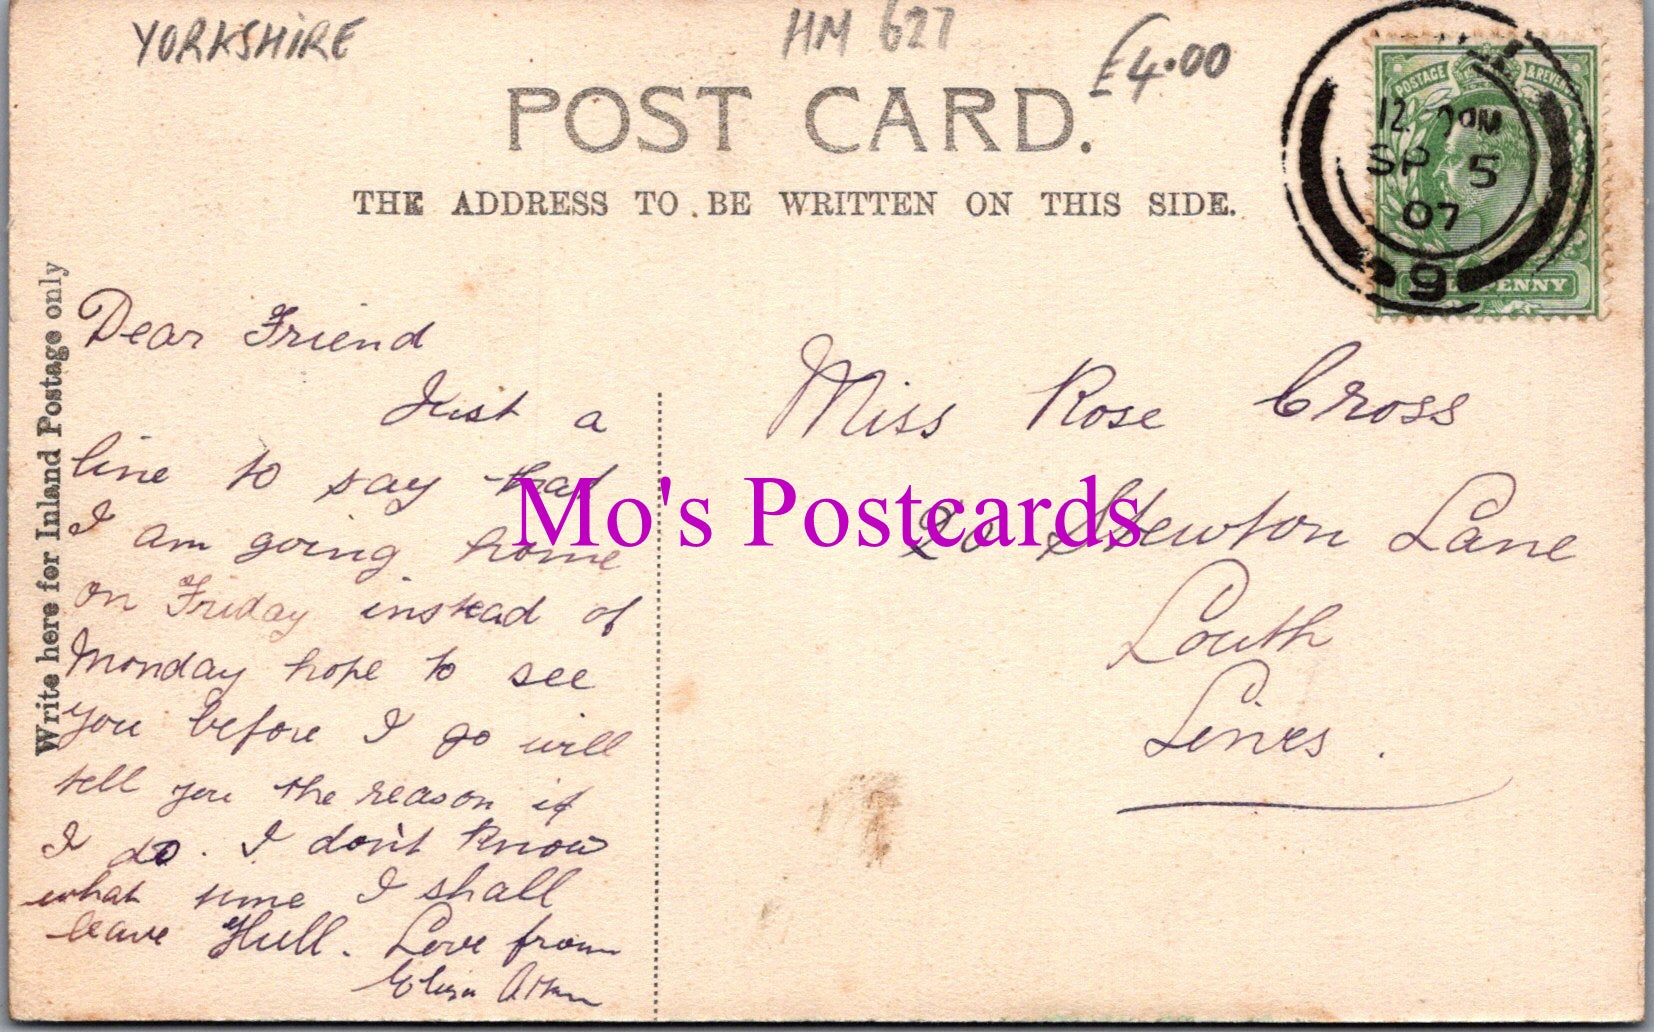 YORKSHIRE
HM 627
£4.00
POST CARD.
THE ADDRESS TO BE WRITTEN ON THIS SIDE.
POSTAGE & REVENUE
12. PM
SP 5
07
9
HALFPENNY
Write here for Inland Postage only
Dear Friend
Just a
line to say that
I am going home
on Friday instead of
Monday hope to see
you before I go will
tell you the reason if
I do. I don't know
what time I shall
leave Hull. Love from
Eliza
Miss Rose Cross
Newton Lane
Louth
Lincs.
Mo's Postcards